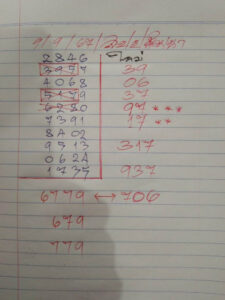 2846
3957 39
4068 06
5179 37
6280 97 ***
7391 17 **
8402
9513 317
0624
1735 937
6779 ↔ 706
679
779